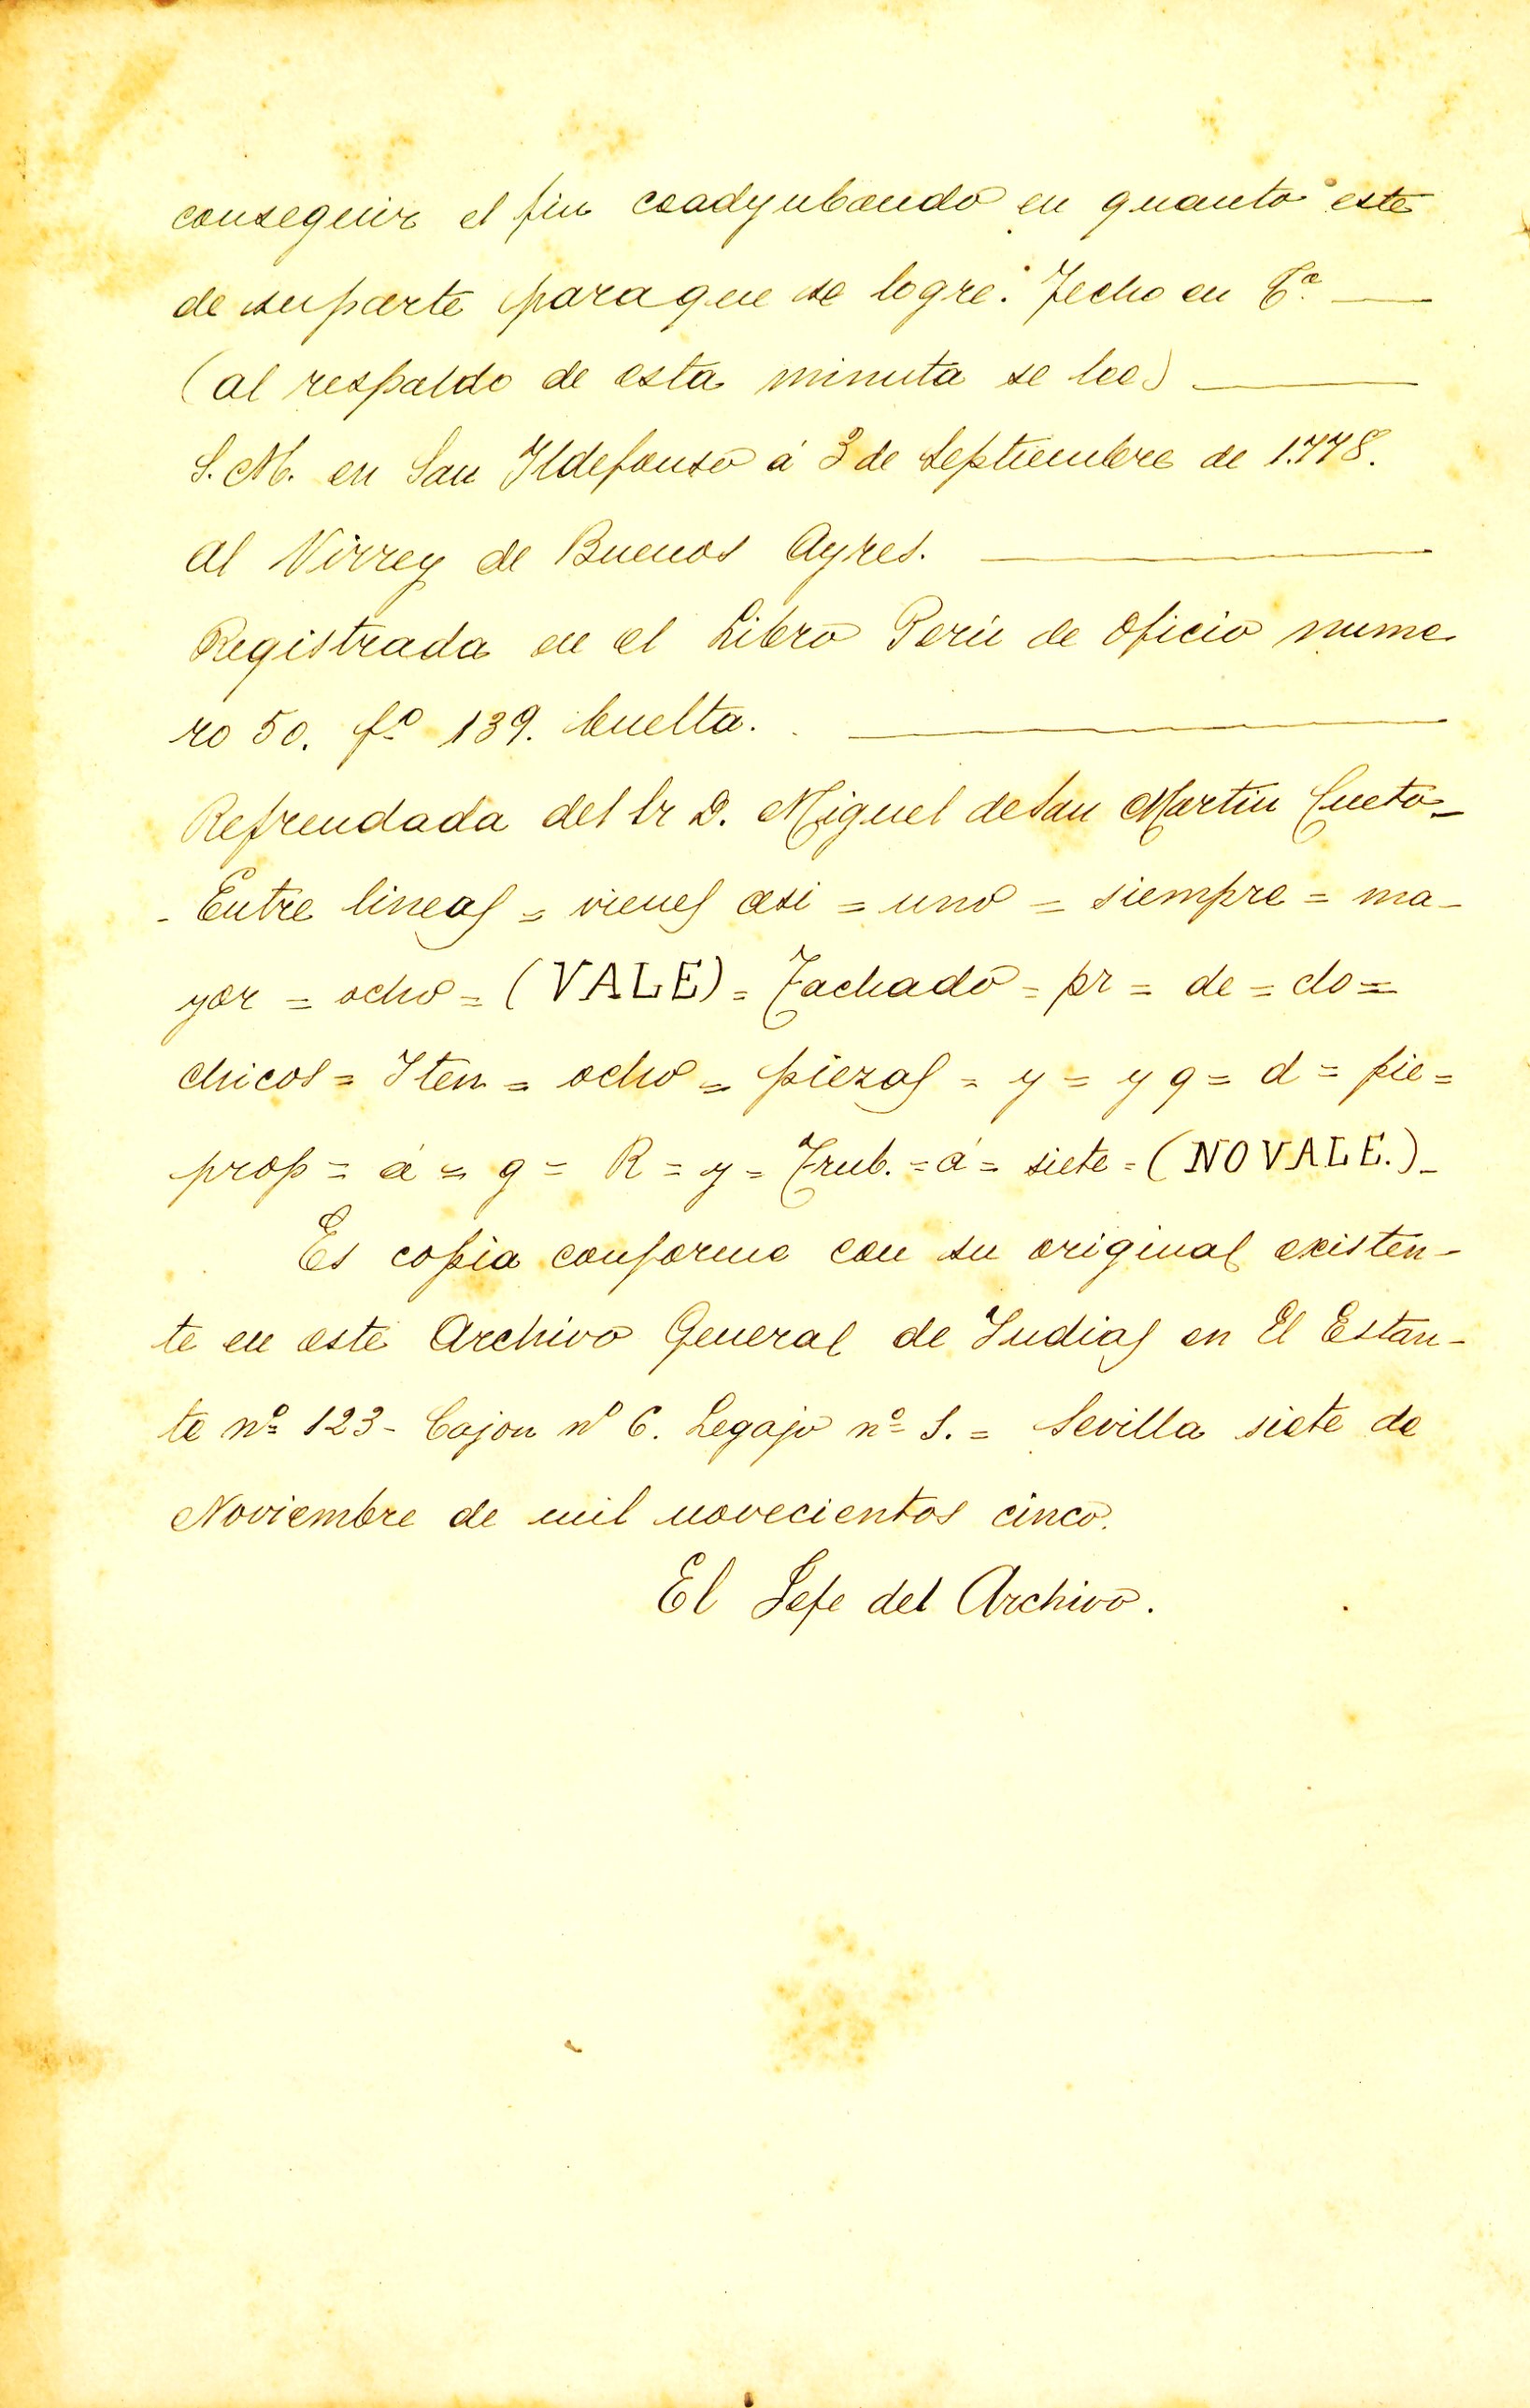 conseguir el fin coadyubando en quanto este
de suparte paraque se logre. Fecho en Cª. ——
(al respaldo de esta minuta se lee) ——
S. M. en San Yldefonso á 3 de Septiembre de 1.778.
al Virrey de Buenos Ayres. ——
Registrada en el Libro Perú de oficio nume
ro 50. fº 139. buelta. ——
Refrendada del Sr D. Miguel deSan Martin Cueto-
- Entre lineas = vienes asi = uno = siempre = ma-
yor = ocho = (VALE) = Tachado = pr = de = do =
chicos = Iten = ocho = piezas = y = y q = d = pie =
prop = á = g = R = y = Trub. = á = siete = (NO VALE.) -
Es copia conforme con su original existen-
te en este Archivo General de Indias en El Estan-
te nº 123 - Cajon nº 6. Legajo nº S. = Sevilla siete de
Noviembre de mil novecientos cinco.
El Jefe del Archivo.